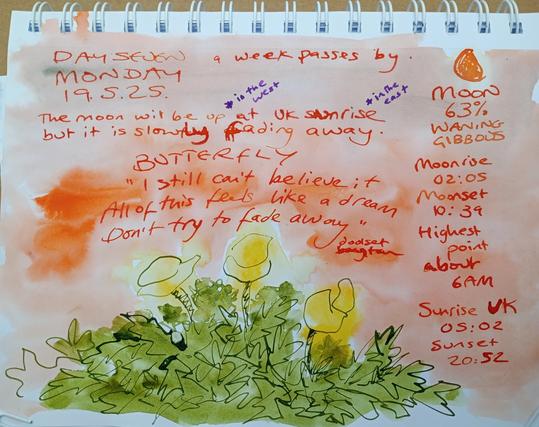 DAY SEVEN a week passes by.
MONDAY
19.5.25.
* in the west
* in the east
The moon will be up at UK sunrise
but it is slowly fading away.
BUTTERFLY
"I still can't believe it
All of this feels like a dream
Don't try to fade away"
Moon
63%
WANING
GIBBOUS
Moonrise
02:05
Moonset
10:39
Highest
point
about
6AM
Sunrise UK
05:02
Sunset
20:52